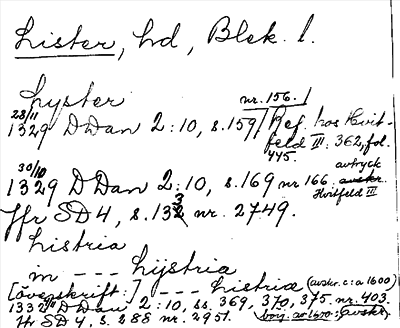 Lister, hd, Blek. l.
Lyster nr. 156.
28/11 1329 DDan 2:10, s.159, Ref. hos Hvit-
feld III: 362, fol.
445.
30/10 1329 DDan 2:10, s.169 nr 166. avtryck
Hvitfeld III
Jfr SD 4, s. 133 nr. 2749.
Listria
in --- Lijstria
[övegskrift:] --- Listriæ (avskr. c:a 1600)
1332 DDan 2:10, ss. 369, 370, 375. nr. 403.
Jfr SD 4, s. 288 nr. 2951. avskr.